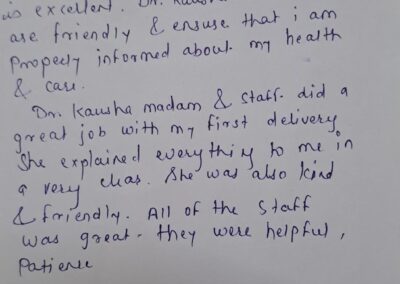 is excellent. Dr. Kausha
are friendly & ensuse that i am
Properly informed about my health
& care.
Dr. Kausha madam & staff did a
great job with my first delivery
She explained everything to me in
a very clear. She was also kind
& friendly. All of the staff
was great. they were helpful,
Patience